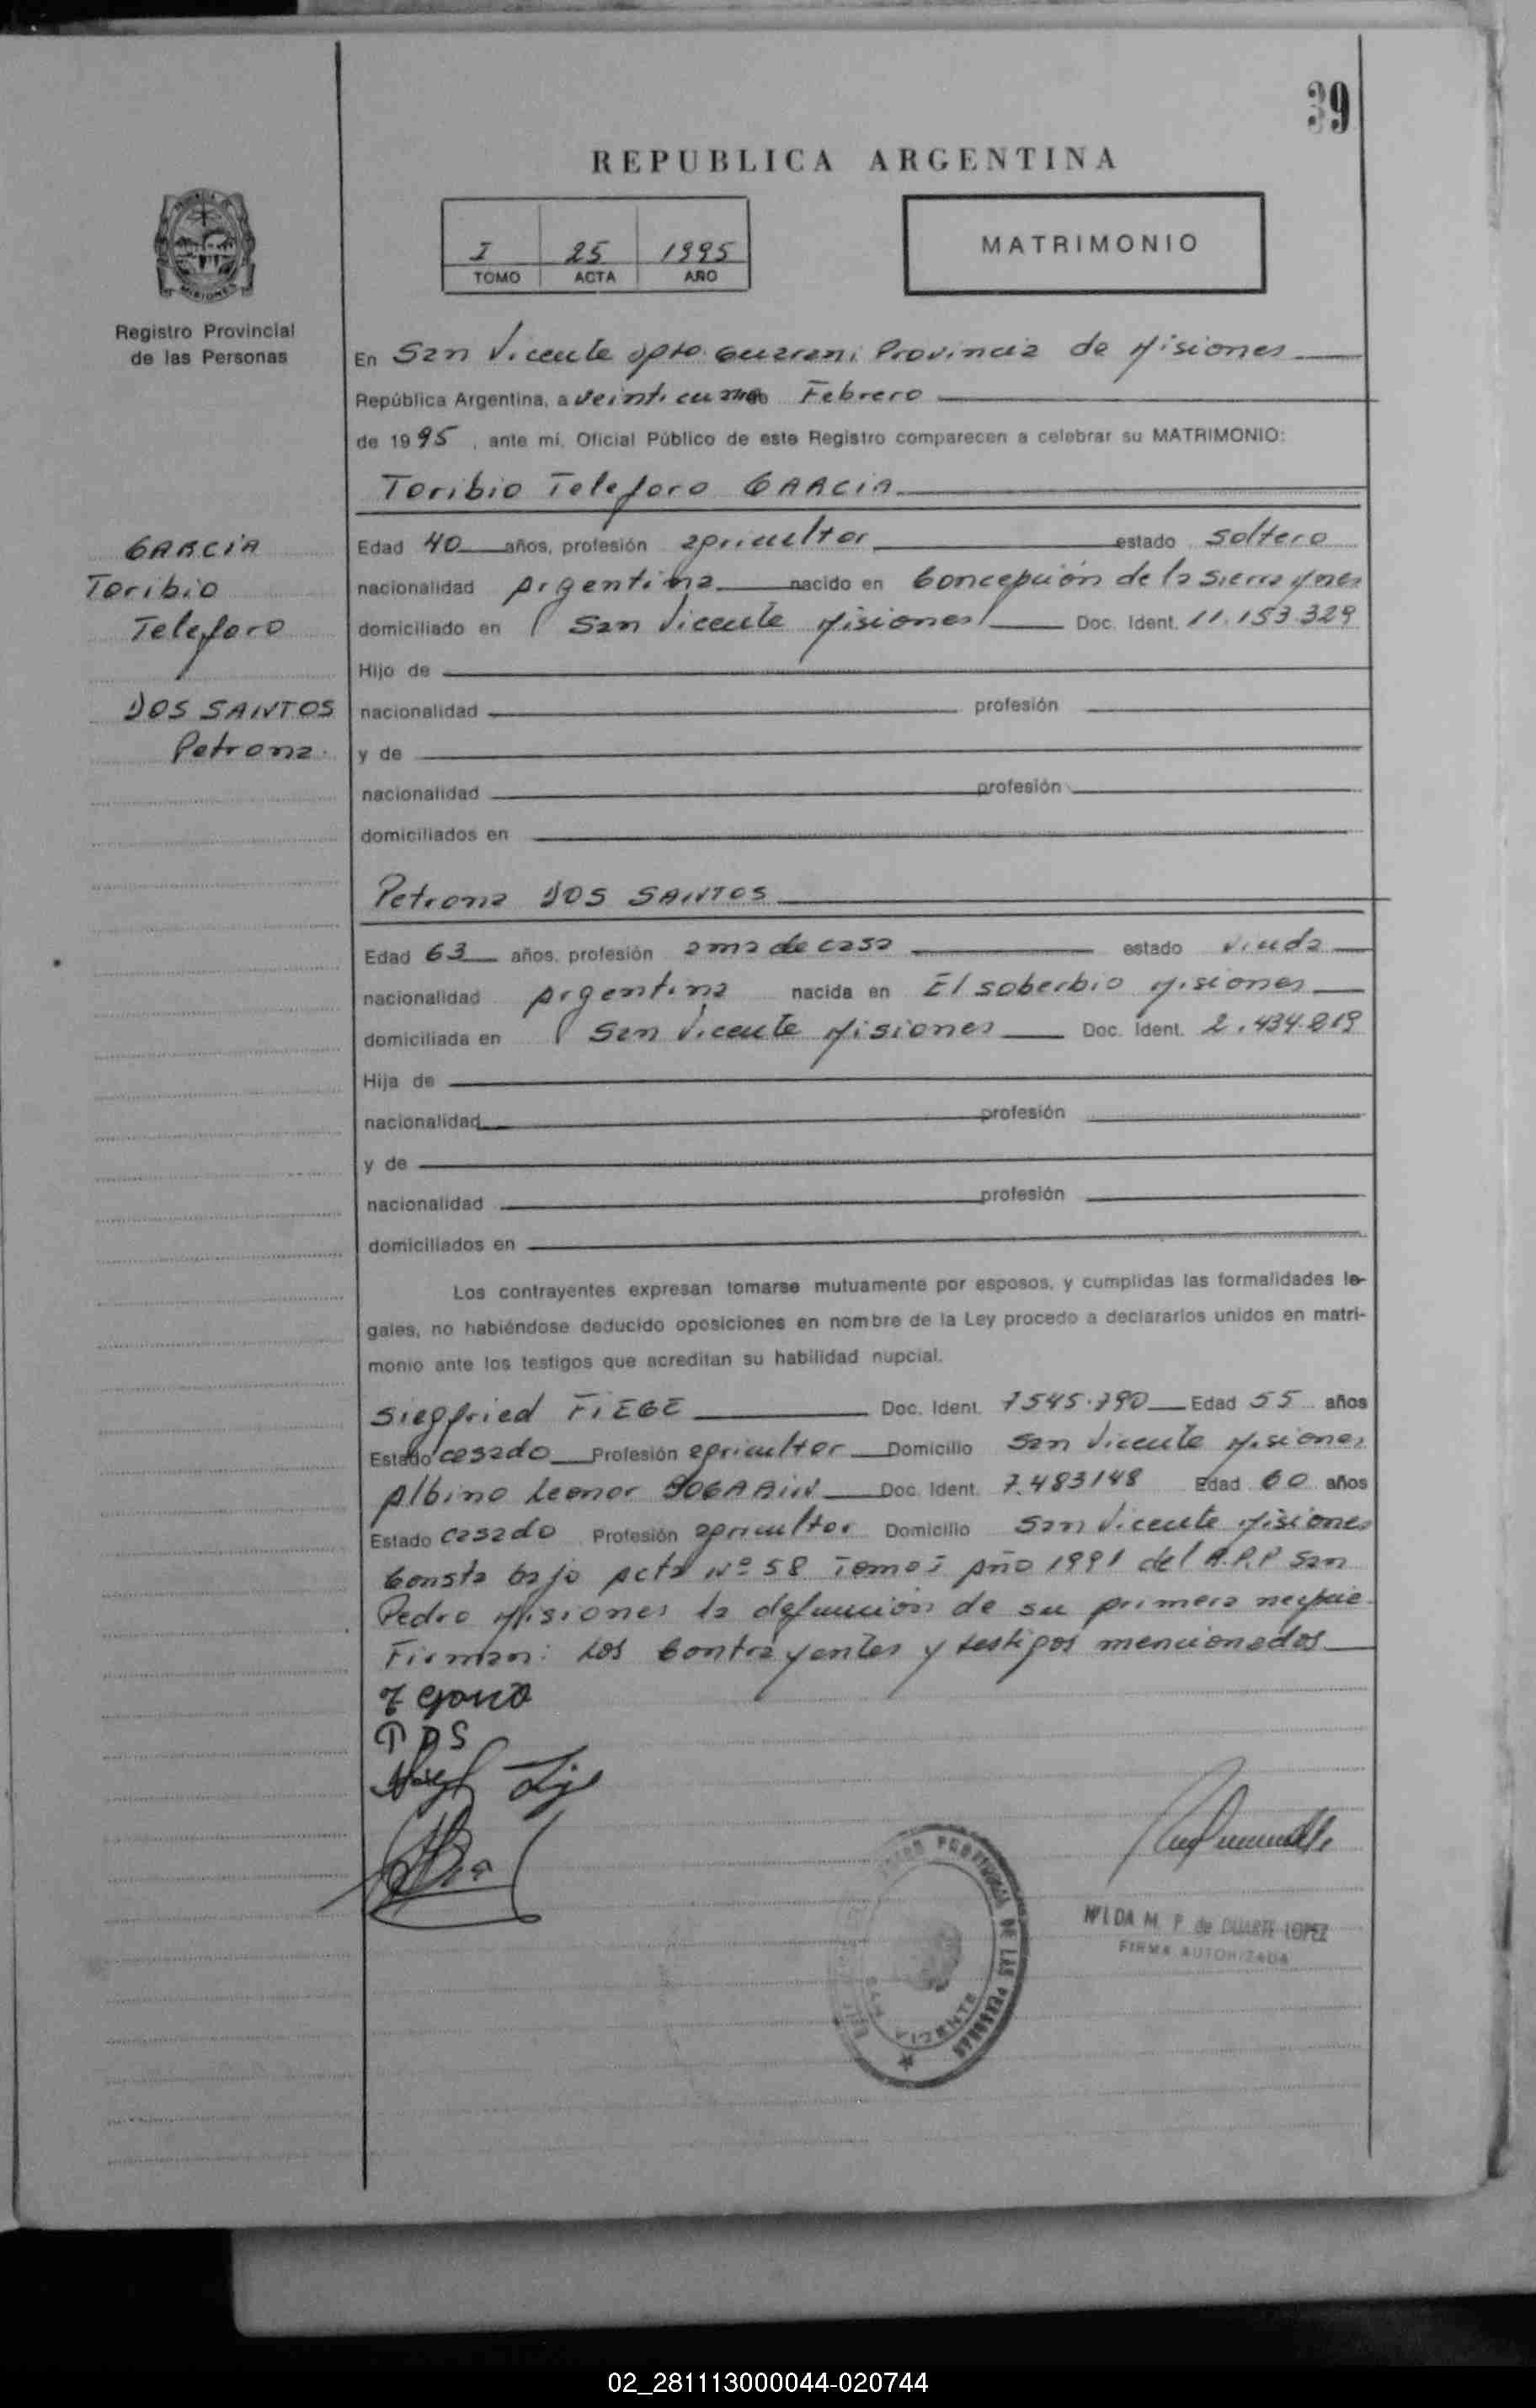 39
REPUBLICA ARGENTINA
I 25 1995
TOMO ACTA AÑO
MATRIMONIO
MISIONES
Registro Provincial
de las Personas
En San Vicente Dpto. Guarani Provincia de Misiones
República Argentina, a Febrero
de 1995, ante mí, Oficial Público de este Registro comparecen a celebrar su MATRIMONIO:
Toribio Teleforo GARCIA
GARCIA
Toribio
Teleforo
DOS SANTOS
Petrona.
Edad 40 años, profesión agricultor estado Soltero
nacionalidad Argentina nacido en Concepción de la Sierra
domiciliado en San Vicente Misiones Doc. Ident. 11.153.329
Hijo de
nacionalidad profesión
y de
nacionalidad profesión
domiciliados en
Petrona DOS SANTOS
Edad 63 años, profesión ama de casa estado viuda
nacionalidad Argentina nacida en El soberbio Misiones
domiciliada en San Vicente Misiones Doc. Ident.
Hija de
nacionalidad profesión
y de
nacionalidad profesión
domiciliados en
Los contrayentes expresan tomarse mutuamente por esposos, y cumplidas las formalidades le-
gales, no habiéndose deducido oposiciones en nombre de la Ley procedo a declararlos unidos en matri-
monio ante los testigos que acreditan su habilidad nupcial.
Siegfried FIEGE Doc. Ident. 7545.790 Edad 55 años
Estado casado Profesión agricultor Domicilio San Vicente Misiones
Albino Leonor Doc. Ident. 7.483148 Edad 60 años
Estado casado Profesión agricultor Domicilio San Vicente Misiones
Consta bajo Acta Nº 58 Tomo I Año 1991 del R.P.P San
Pedro Misiones la defunción de su primera
Firman: Los Contrayentes y testigos mencionados
PDS
DE LAS PERSONAS
SAN VICENTE
HILDA M. P. de DUARTE LOPEZ
FIRMA AUTORIZADA
02_281113000044-020744